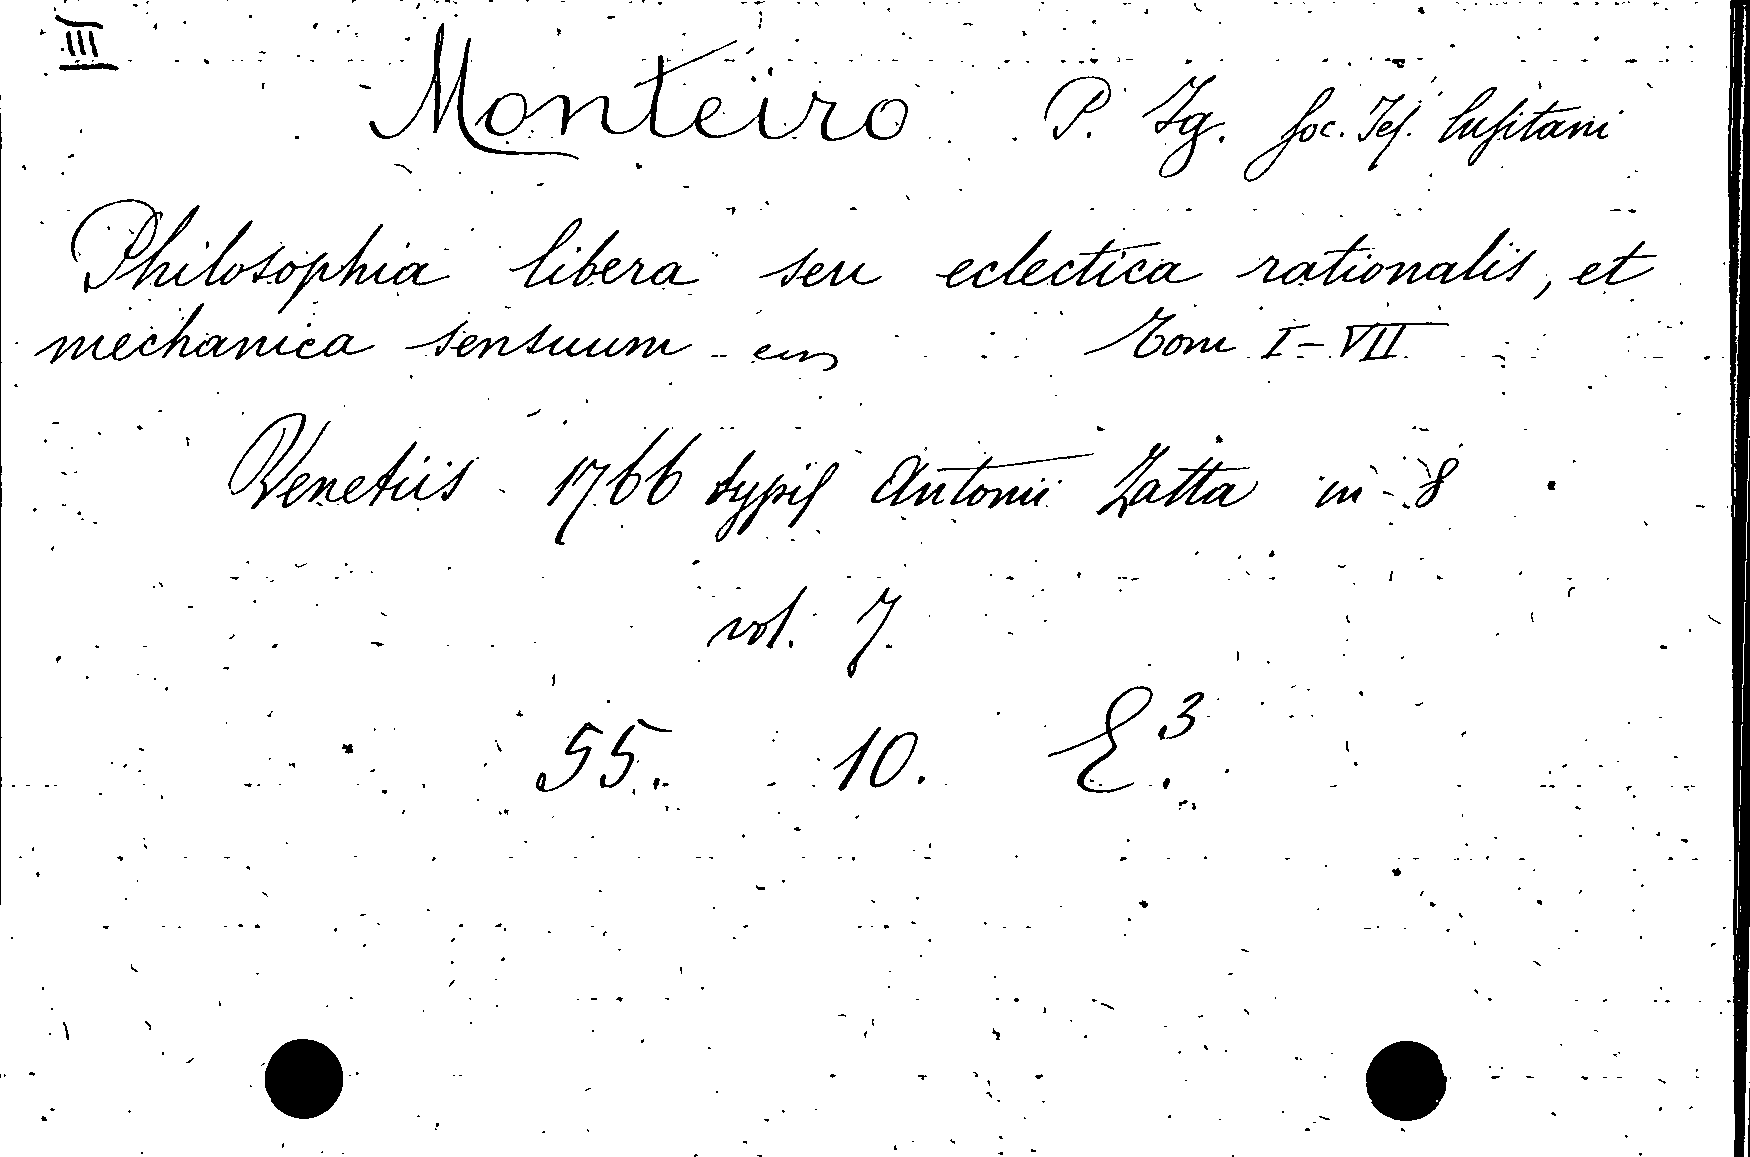 III
Monteiro P. Ig. Soc. Jes. lusitani
Philosophia libera seu eclectica rationalis, et
mechanica sensuum Tom I-VII
Venetiis 1766 typis Antonii Zatta in-8
vol. 7.
55. 10. E³.